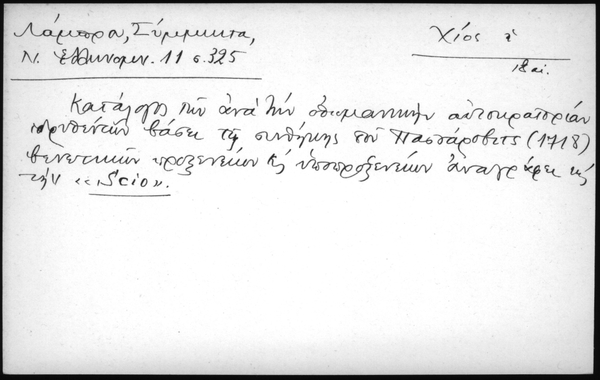 Λάμπρου, Σύμμικτα,
Ν. Ἑλληνομν. 11 σ. 325
Χίος
18 αἰ.
Κατάλογος τῶν ἀνὰ τὴν ὀθωμανικὴν αὐτοκρατορίαν
ἱδρυθέντων βάσει τῆς συνθήκης τοῦ Πασσάροβετς (1718)
βενετικῶν προξενείων κ ὑποπροξενείων ἀναγράφει κ
τὴν «Scio».